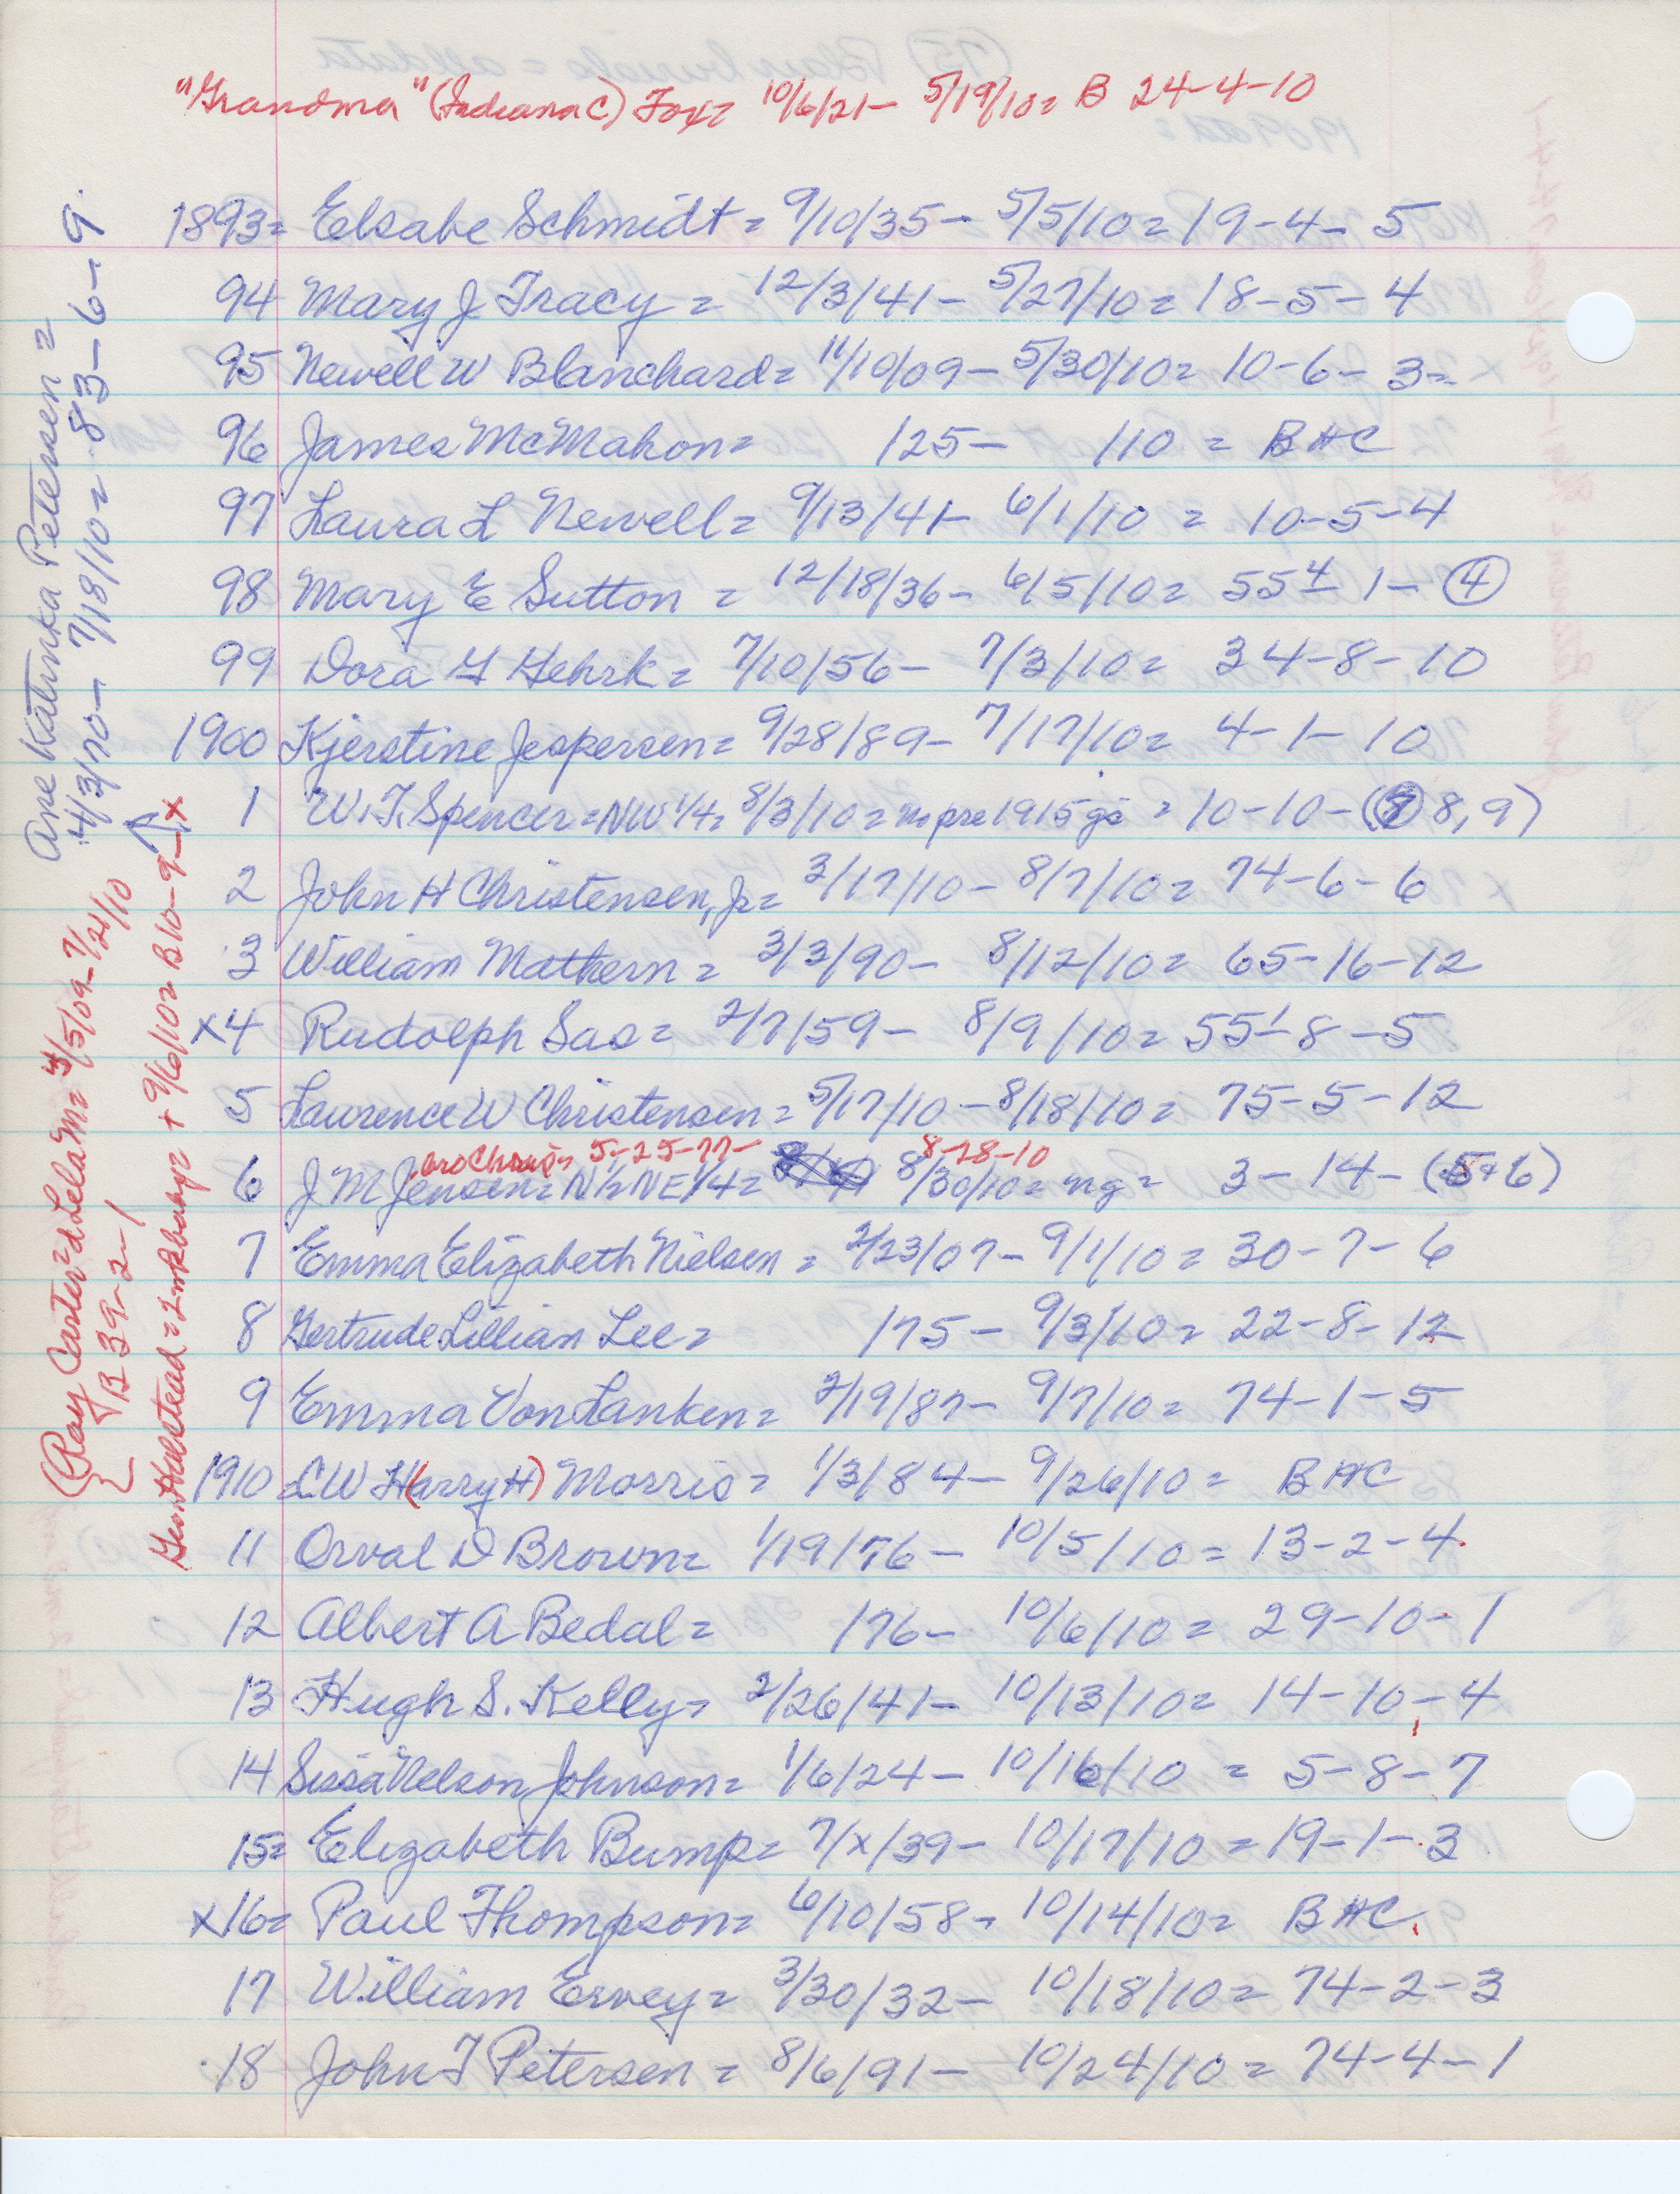 "Grandma" (Indiana C) Fox= 10/6/21- 5/19/10= B 24-4-10
1893= Elsabe Schmidt = 9/10/35- 5/5/10= 19-4-5
94 Mary J Tracy = 12/3/41- 5/27/10= 18-5-4
95 Newell W Blanchard= 11/10/09- 5/30/10= 10-6-3-
96 James McMahon= /25- /10 = BHC
97 Laura L Newell= 9/13/41- 6/1/10 = 10-5-4
98 Mary E Sutton = 12/18/36- 6/5/10= 55 4- 1- 4
99 Dora G Gehrk= 7/10/56- 7/3/10= 34-8-10
1900 Kjerstine Jespersen= 9/28/89- 7/17/10= 4-1-10
1 W.T. Spencer=NW 1/4= 8/3/10= m pre 1915 gs = 10-10-(7 8, 9)
2 John H Christensen, Jr= 3/17/10- 8/7/10= 74-6-6
3 William Mathern = 3/3/90- 8/12/10= 65-16-12
x4 Rudolph Sas= 2/7/59- 8/9/10= 55 1-8-5
5 Laurence W Christensen= 5/17/10-8/18/10= 75-5-12
bro Chris= 5-25-77- 8-28-10
6 J M Jensen= N 1/2 NE 1/4= 8/30/10= ng= 3-14-(5+6)
7 Emma Elizabeth Nielsen = 2/23/07- 9/1/10= 30-7-6
8 Gertrude Lillian Lee= /75- 9/3/10= 22-8-12
9 Emma Von Lanken= 2/19/87- 9/7/10= 74-1-5
1910= CW H(arry H) Morris= 1/3/84- 9/26/10= BHC
11 Orval D Brown= 1/19/76- 10/5/10= 13-2-4
12 Albert A Bedal= /76- 10/6/10= 29-10-1
13 Hugh S. Kelly= 2/26/41- 10/13/10= 14-10-4
14 Sissa Nelson Johnson= 1/6/24- 10/16/10 = 5-8-7
15= Elizabeth Bump= 7/x/39- 10/17/10 = 19-1-3
x16= Paul Thompson= 6/10/58- 10/14/10= BHC
17 William Ervey= 3/30/32- 10/18/10= 74-2-3
18 John F Petersen = 8/6/91- 10/24/10= 74-4-1
Ane Katinka Petersen =
4/3/70- 7/18/10= 83-6-9
(Ray Carter= d Lela M= 4/5/09-7/21/10
B 39-2-1
Geo Halstead=2 mk baby= + 9/6/10= B 10-9-1x